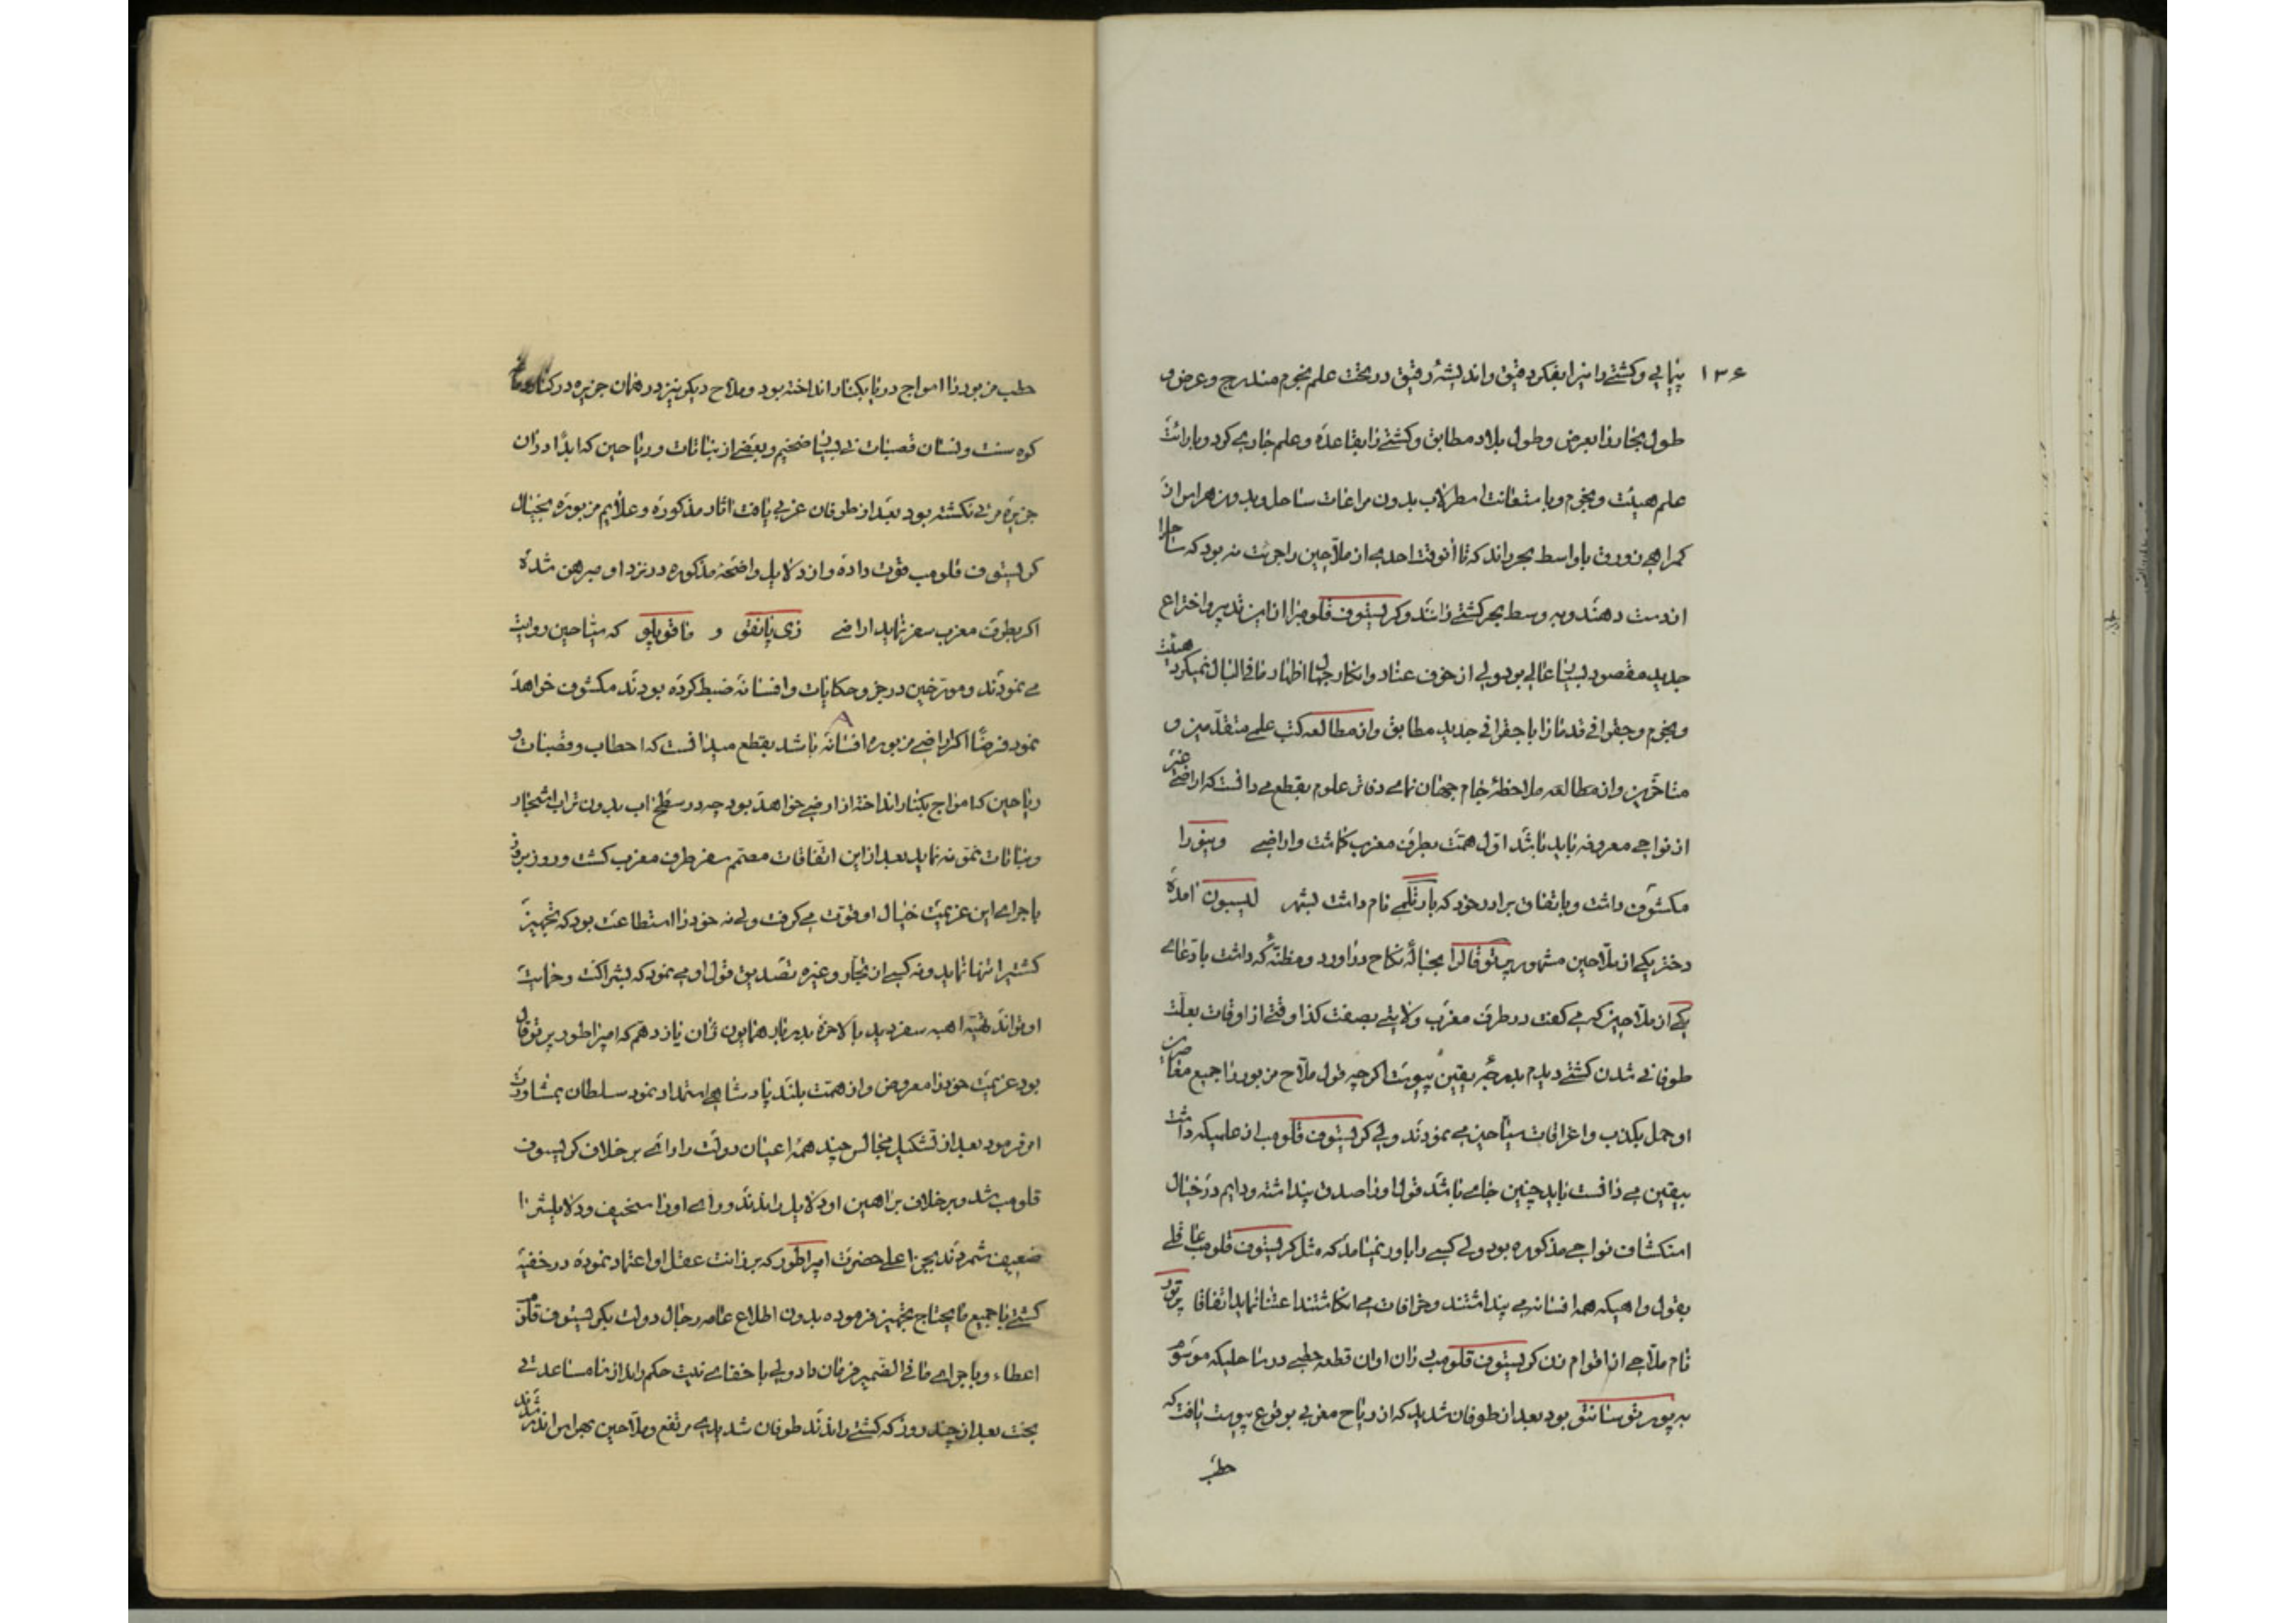 ۱۳۶
پیمایی و کشتی رانیرا بفکر دقیق و اندیشهٔ رقیق در تحت علم نجوم مندرج و عرض و
طول بحار را بعرض و طول بلاد مطابق و کشتی را بقاعده و علم جاری کرد و بارائت
علم هیئت و نجوم و باستعانت اسطرلاب بدون مراعات ساحل و بدون هراس از
کمراهی زورق باواسط بحر راند که تا آنوقت احدی از ملّاحین را جرئت نه بود که ساحلرا
از دست دهند و به وسط بحر کشتی رانند و کریستوف قلومبرا از این تدبیر و اختراع
جدید مقصود بسیار عالی بود ولی از خوف عناد و انکار جهلا اظهار مافی البال نمیکرد هیئت
و نجوم و جغرافی قدما را با جغرافی جدید مطابق و از مطالعه کتب علمی متقدّمین و
متأخّرین و از مطالعه ملاحظهٔ جام جهان نمای دفاتر علوم بقطع می دانست که اراضی غیر
از نواحی معروفه باید باشد اوّل همّت بطرف مغرب کماشت و اراضی
مکشوف داشت و باتفاق برادر خود که بارتلمی نام داشت بشهر لیسبون آمده
دختر یکی از ملّاحین مشهور پرتوقالرا بحبالهٔ نکاح درآورد و مظنّهٔ که داشت بادّعای
یکی از ملّاحین که می کفت در طرف مغرب ولایتی بصفت کذا وقتی از اوقات بعلّت
طوفانی شدن کشتی دیدم بدرجهٔ یقین پیوست اکرچه قول ملّاح مزبور را جمیع معاصرین
او حمل بکذب و اغراقات سیّاحین می نمودند ولی کریستوف قلومب از علمیکه داشت
بیقین می دانست باید چنین جای باشد قول او را صدق پنداشته و دایم در خیال
استکشاف نواحی مذکوره بود ولی کسی را باور نمیامد که مثل کریستوف قلومب عاقلی
بقول واهیکه همه افسانه می پنداشتند و خرافات می انکاشتند اعتنا نماید اتفاقا
نام ملّاحی از اقوام زن کریستوف قلومب در آن اوان قطعه حطبی در ساحلیکه موسوم
به پورتوسانتو بود بعد از طوفان شدید که از ریاح مغربی بوقوع پیوست یافت که
حطب
حطب مزبور را امواج دریا بکنار انداخته بود و ملّاح دیکر نیز در همان جزیره در کنار
کوه سنت ونسان قصبات نی بسیار ضخیم و بعضی از نباتات و ریاحین که ابدًا در آن
جزیره مرئی نکشته بود بعد از طوفان غربی یافت اثار مذکوره و علایم مزبوره بخیال
کریستوف قلومب قوّت داده و از دلایل واضحهٔ مذکوره در نزد او مبرهن شده
اکر بطرف مغرب سفر نماید اراضی زی پانغو و که سیّاحین روایت
می نمودند و مورّخین در جزو حکایات و افسانه ضبط کرده بودند مکشوف خواهد
نمود فرضًا اکر اراضی مزبوره افسانه باشد بقطع میدانست که احطاب و قصبات و
ریاحین که امواج بکنار انداخته از ارضی خواهد بود چه در سطح اب بدون تراب اشجار
و نباتات نموّ نه نماید بعد از این اتّفاقات مصمّم سفر طرف مغرب کشت و روز بروز
باجرای این عزیمت خیال او قوّت می کرفت ولی نه خود را استطاعت بود که تجهیز
کشتیرا تنها نماید و نه کسی از تجّار و غیره تصدیق قول او می نمود که بشراکت و حمایت
او تواند تهیّه اهبه سفر دید بالاخره بدربار همایون ژان یازدهم که امپراطور پرتوقال
بود عزیمت خود را معروض و از همّت بلند پادشاهی استمداد نمود سلطان بمشاورت
او فرمود بعد از تشکیل مجالس چند همهٔ اعیان دولت را رای بر خلاف کریستوف
قلومب شد و بر خلاف براهین او دلایل راندند و رای او را سخیف و دلایلشرا
ضعیف شمردند بجز اعلی حضرت امپراطور که برزانت عقل او اعتماد نموده در خفیه
کشتی با جمیع مایحتاج تجهیز فرموده بدون اطلاع عامه رجال دولت بکریستوف قلومب
اعطاء و باجرای مافی الضمیر فرمان داد ولی باخفای نیت حکم راند از نامساعدتی
بخت بعد از چند روز که کشتی راندند طوفان شدیدی مرتفع و ملّاحین بهراس اندر شدند